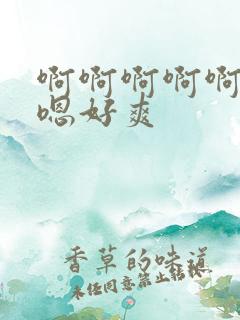 啊啊啊啊啊
嗯好爽
香草的味道
未经同意禁止转载